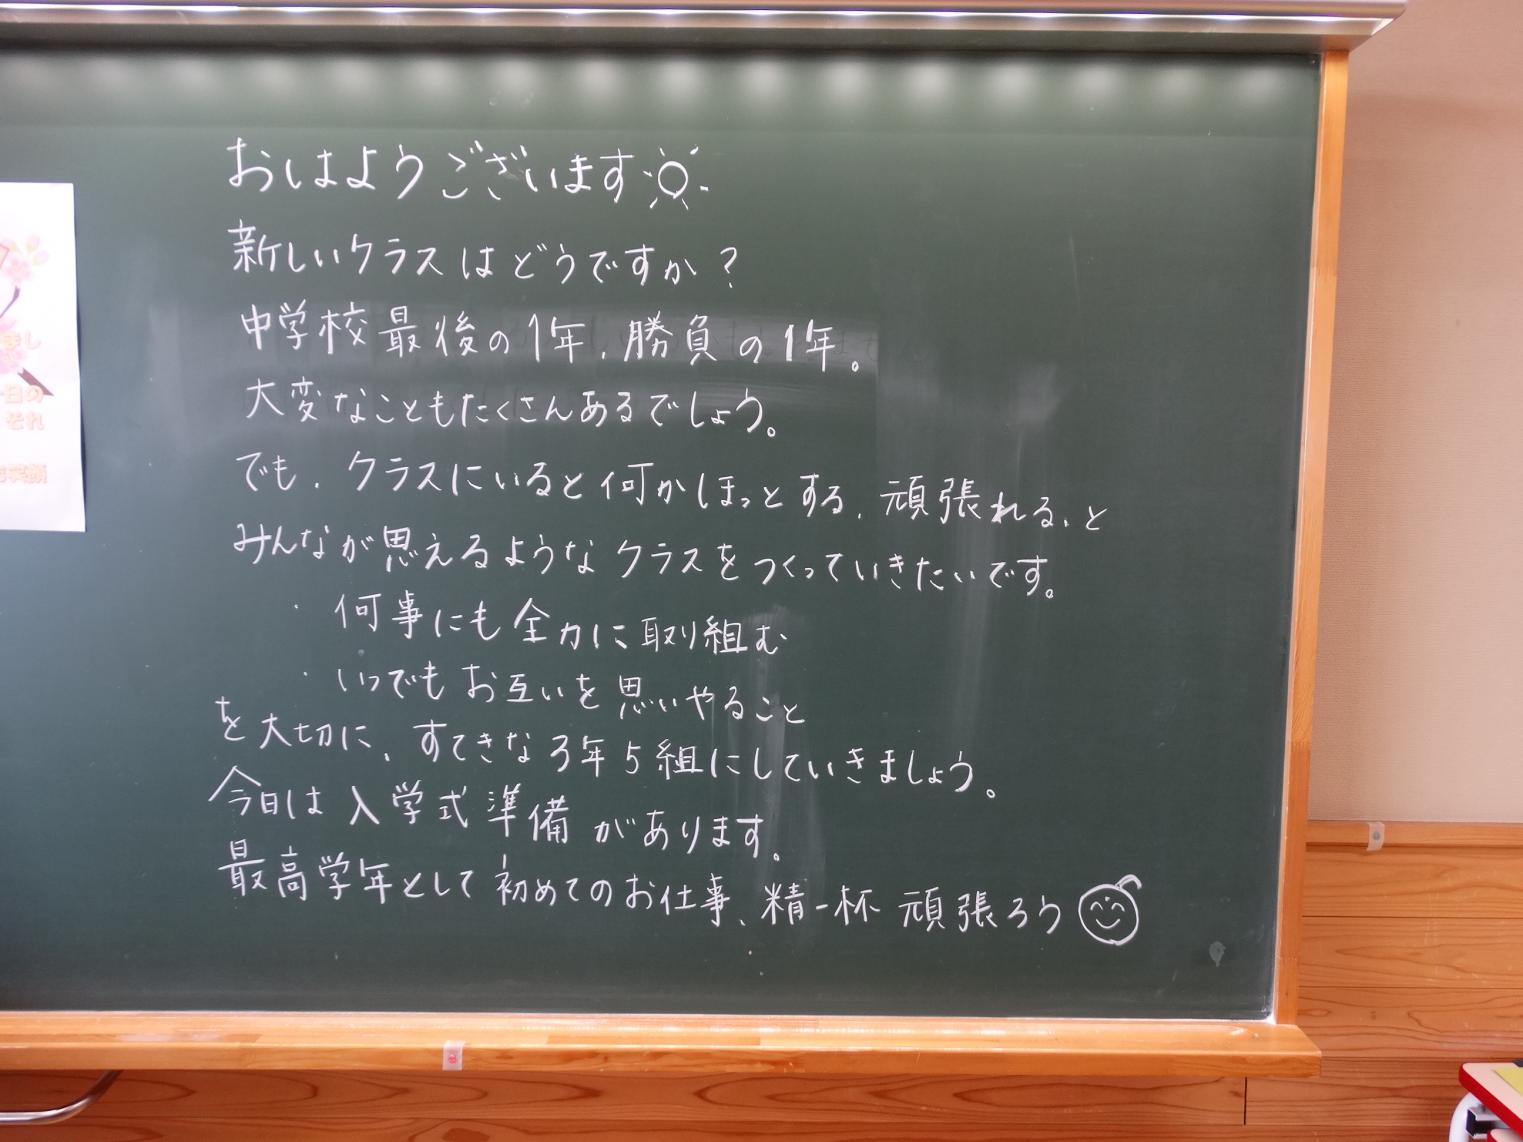 おはようございます
新しいクラスはどうですか？
中学校最後の1年、勝負の1年。
大変なこともたくさんあるでしょう。
でも、クラスにいると何かほっとする、頑張れる、と
みんなが思えるようなクラスをつくっていきたいです。
・何事にも全力に取り組む
・いつでもお互いを思いやること
を大切に、すてきな3年5組にしていきましょう。
今日は入学式準備があります。
最高学年として初めてのお仕事、精一杯頑張ろう
まし
日の
それ
笑顔